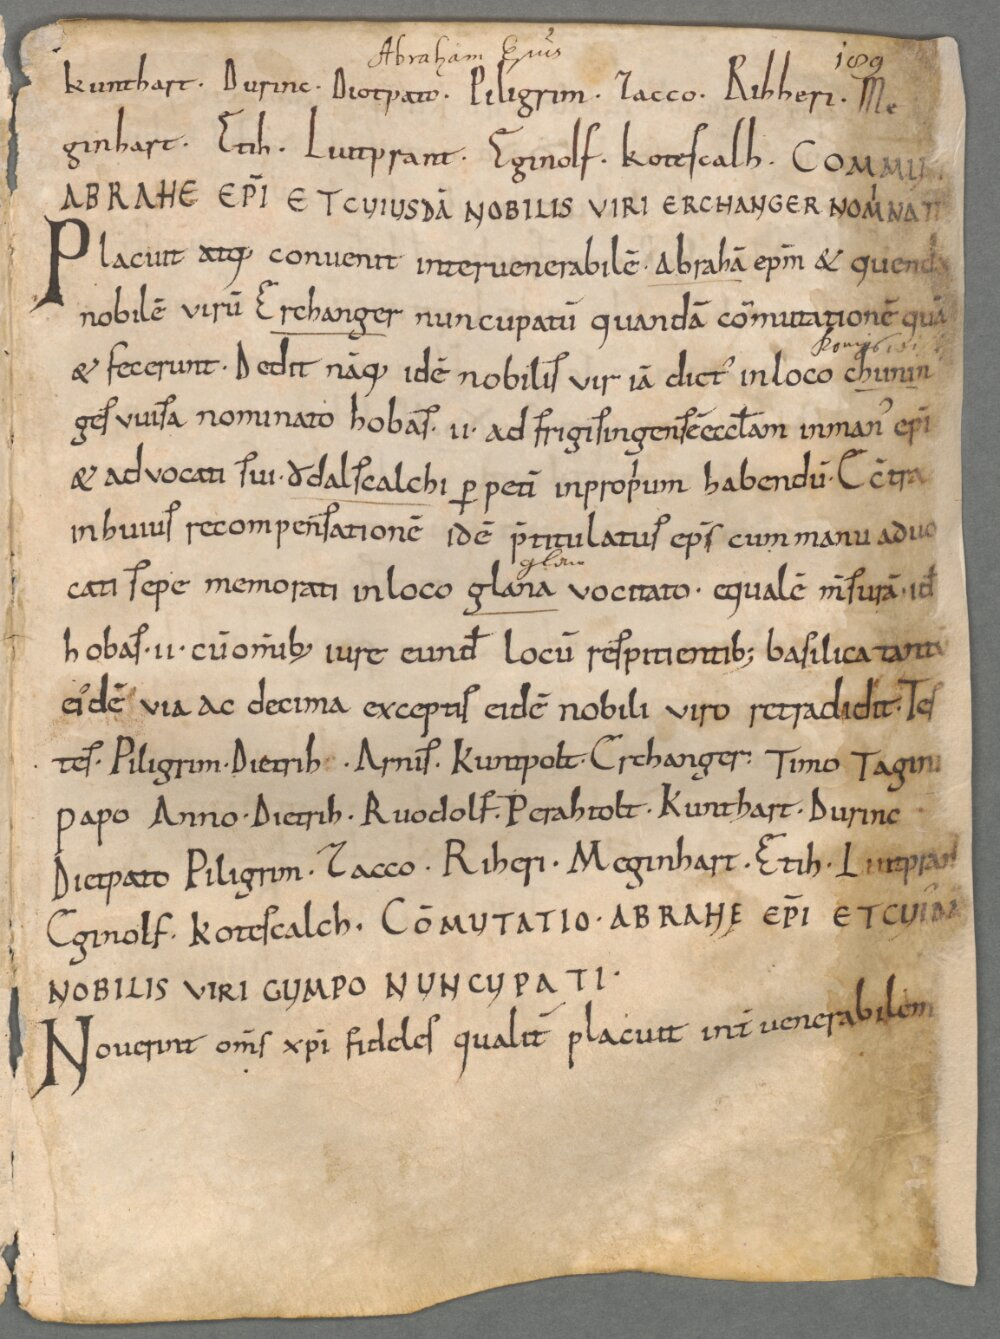 Abraham Epūs
189
kunthart · Durinc · Diotpato · Piligrim · Zacco · Rihheri · Me
ginhart · Etih · Liutprant · Eginolf · kotescalh · COMMU
ABRAHE EPĪ ET CUIUSDĀ NOBILIS VIRI ERCHANGER NOMINATI
Placuit atq; convenit inter venerabilē · abrahā epm̄ & quendā
nobilē virū Erchanger nuncupatū quandā cōmutationē quā
& fecerunt · Dedit nāq; idē nobilis vir iā dict' in loco chunin
ges vuisa nominato hobas · ii · ad frigisingensē eccłam in man' epī
& advocati sui · ỏdalscalchi ꝑpetū in proprium habendū · Cc̄tra
in huius recompensationē idē p̄titulatus ep̄s cum manu advo
cati sepe memorati in loco glana vocitato · equalē m̄surā · id
glan
hobas · ii · cū om̄ib; iure eund locū respicientib; basilica tantū
eidē via ac decima exceptis eidē nobili viro retradidit · Tes
tes · Piligrim · Dietrih · Arnis · Kuntpolt · Erchanger · Timo Tagini
papo Anno · Dietrih · Ruodolf · Perahtolt · Kunthart · Durinc
Dietpato Piligrim · Zacco · Riheri · Meginhart · Etih · Liutprant
Eginolf · kotescalch · CŌMUTATIO · ABRAHE EPĪ ET CUI'DĀ
NOBILIS VIRI GUMPO NUNCUPATI ·
Noverint om̄s xp̄i fideles qualit̄ placuit int̄ venerabilem